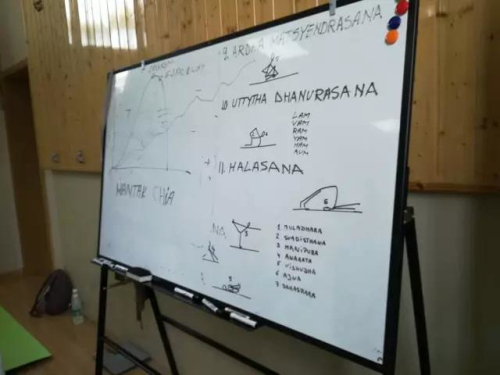 MANTAK CHIA
9. ARDHA MATSYENDRASANA
10. UTTYTHA DHANURASANA
LAM
VAM
RAM
YAM
HAM
AUM
11. HALASANA
NA
1 MULADHARA
2 SVADISTHANA
3 MANIPURA
4 ANAHATA
5 VISHUDHA
6 AJNA
7 SAHASRARA